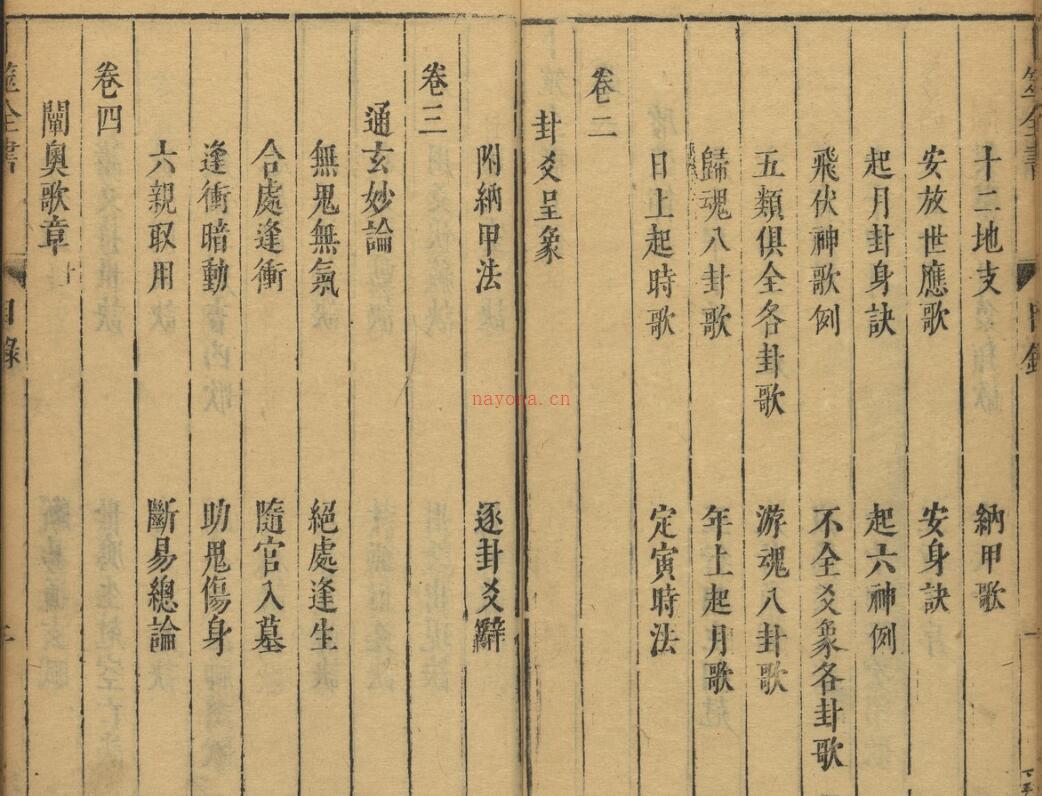 十二地支 納甲歌
安放世應歌 安身訣
起月卦身訣 起六神例
飛伏神歌例 不全爻象各卦歌
五類俱全各卦歌 游魂八卦歌
歸魂八卦歌 年上起月歌
日上起時歌 定寅時法
卷二
卦爻呈象
附納甲法 逐卦爻辭
卷三
通玄妙論
無鬼無氣 絕處逢生
合處逢衝 隨官入墓
逢衝暗動 助鬼傷身
六親取用 斷易總論
卷四
闡奧歌章
筮全書 目錄
nayona.cn